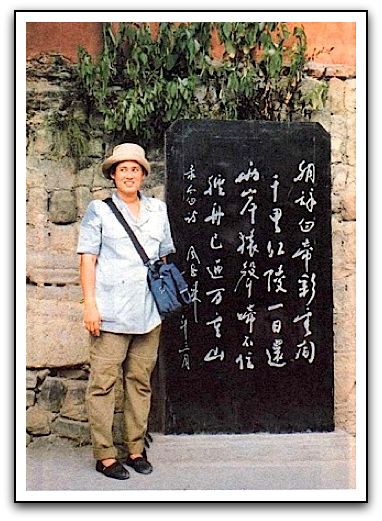 朝辞白帝彩云间
千里江陵一日還
两岸猿聲啼不住
轻舟已过万重山
年三月